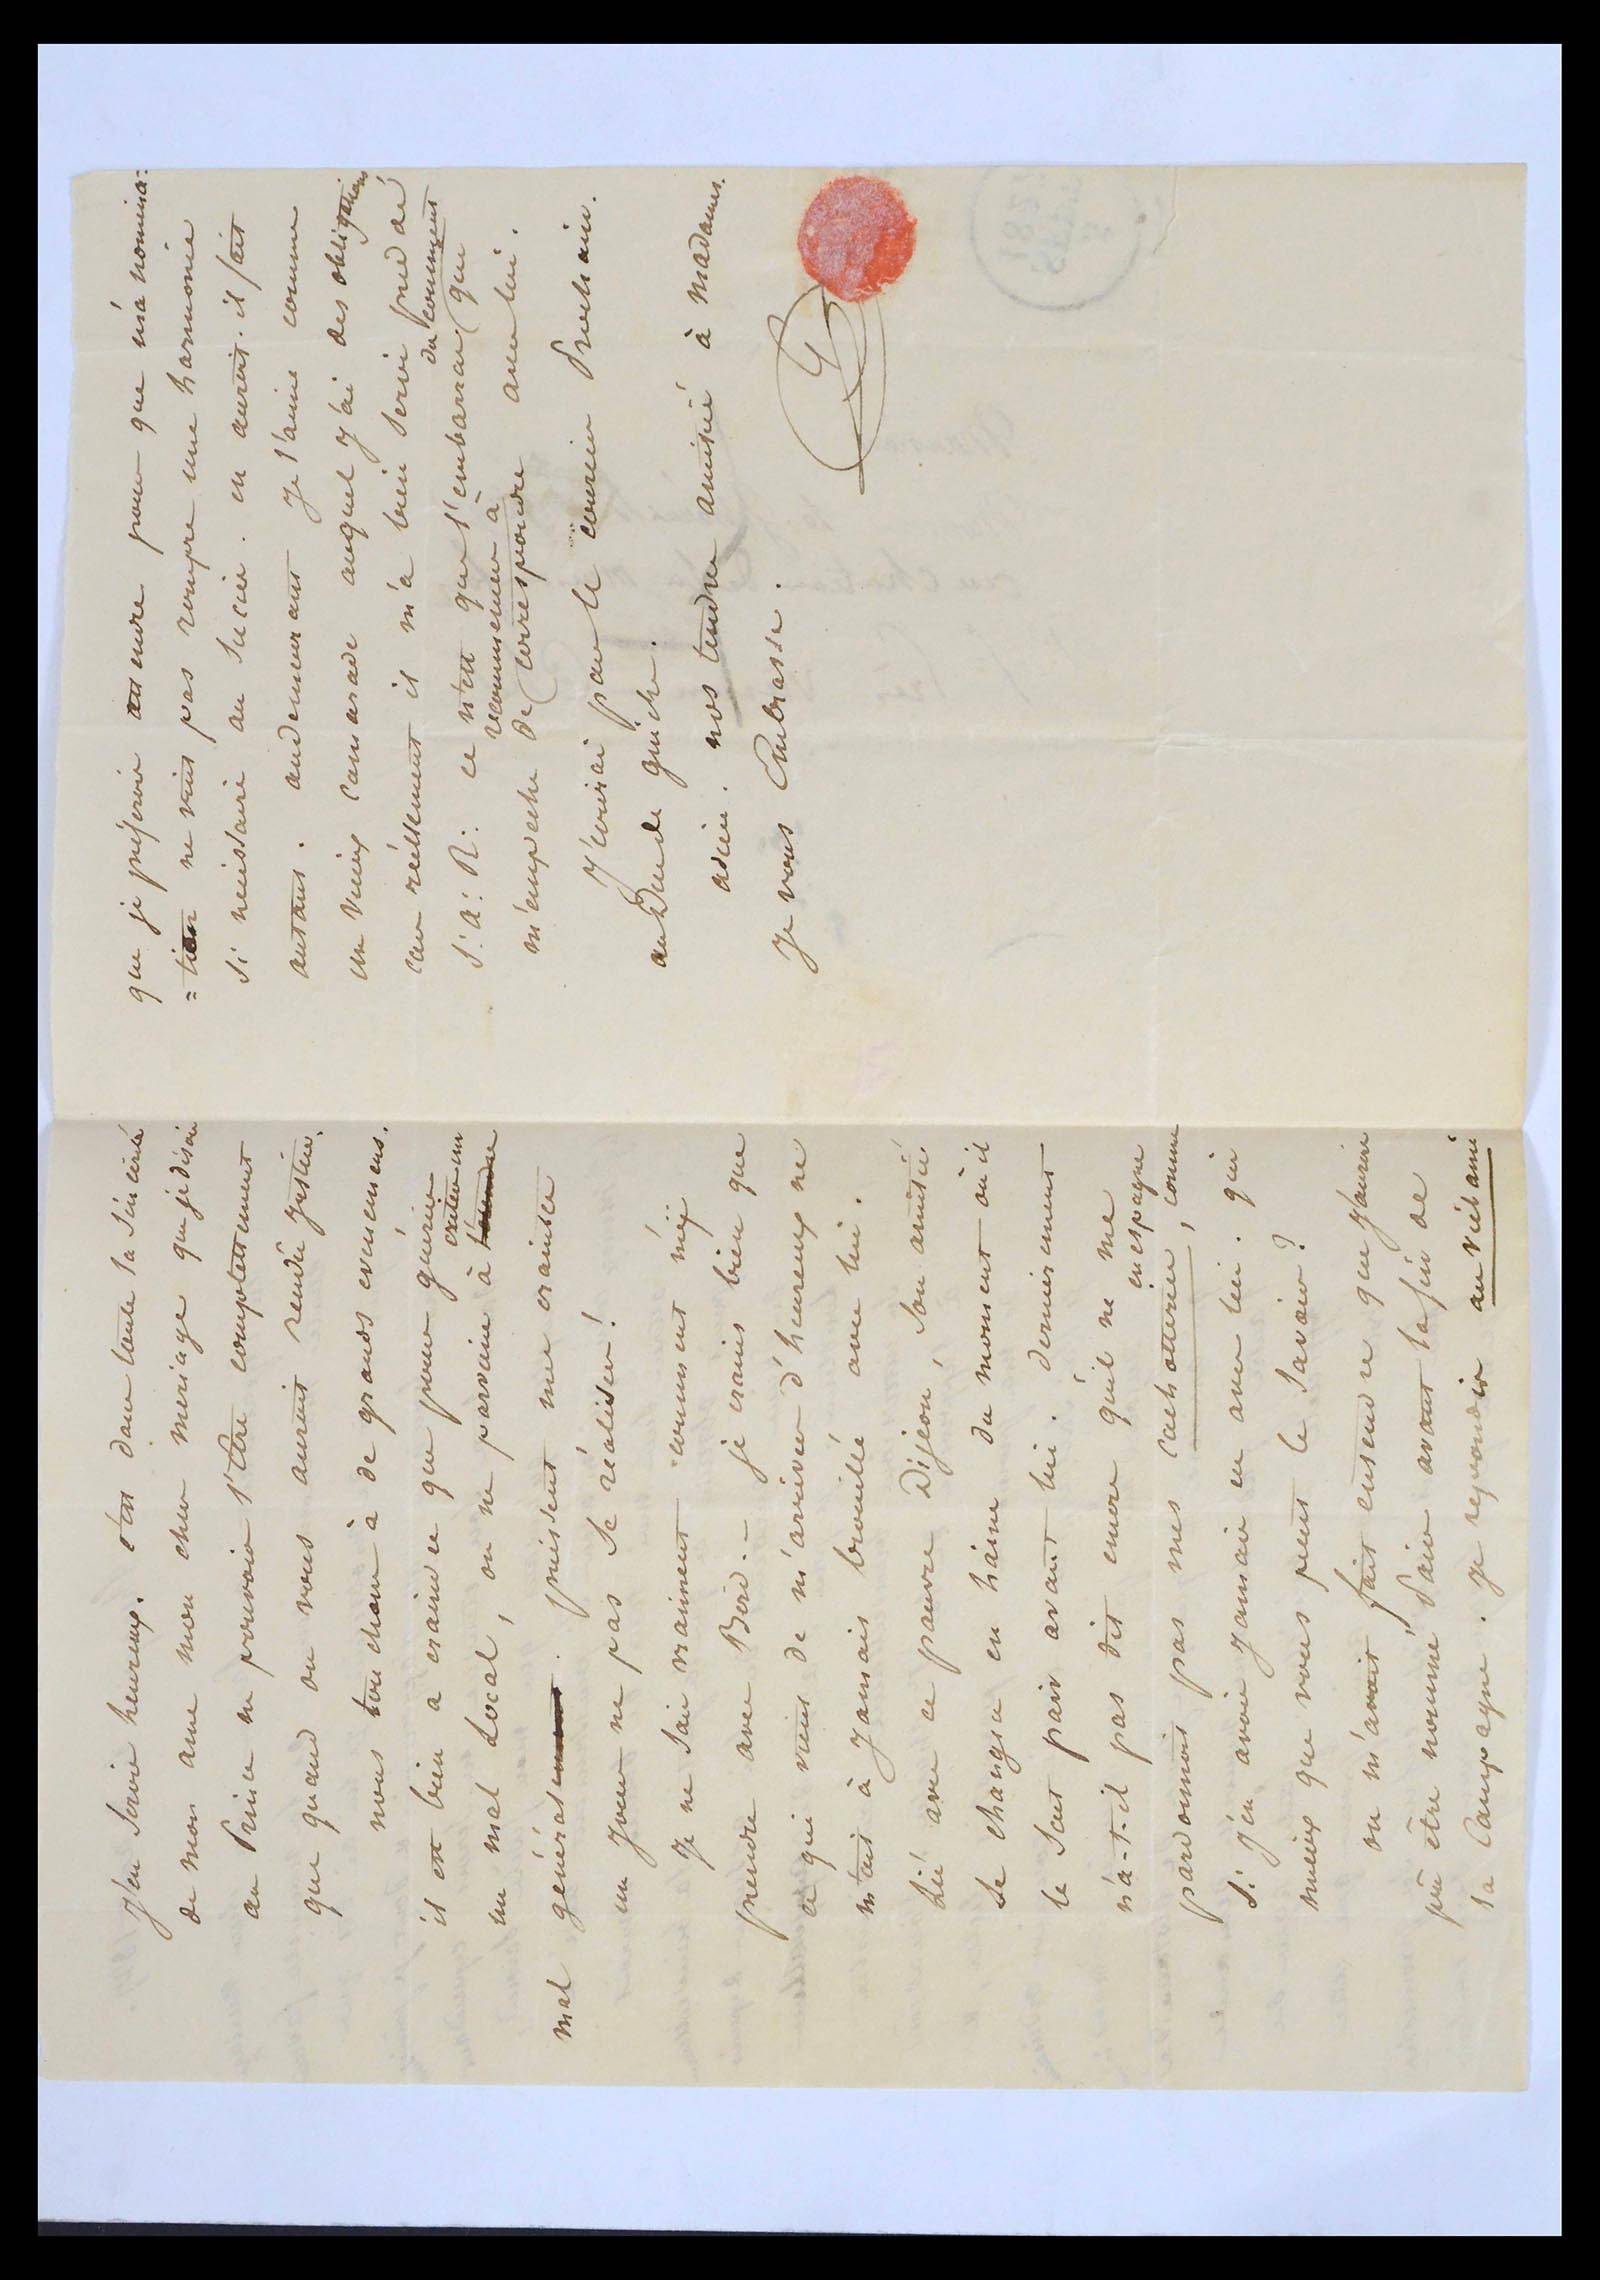 j'en serai heureux. c'est dans toute la sincérité
de mon ame mon cher meriage que je disois
au Prince ne pouvoir l'être complettement
que quand on vous auroit rendu justice.
nous touchons à de grands evenemens.
il est bien a craindre que pour guérir
un mal Local, on ne parvienne à exciter un
mal général. puissent mes craintes
un jour ne pas se réaliser!
Je ne sai vraiment comment m'y
prendre avec Bord. - je crains bien que
ce qui vient de m'arriver d'heureux ne
m'ait à jamais brouillé avec lui.
Lié avec ce pauvre Dijeon, son amitié
se changea en haine du moment où il
le sent pair avant lui. dernierement
n'a-t-il pas dit encore qu'il ne me
pardonnoit pas mes cachotteries en espagne, comme
si j'en avois jamais eu avec lui. qui
mieux que vous peut le savoir?
on m'avoit fait entendre que j'aurois
pû être nommé Pair avant la fin de
la Campagne. je repondis au vieil ami
que je préférois attendre pour que ma nomina=
=tion ne vint pas rompre une harmonie
si necissaire au succès. en auroit-il fait
autant. au demeurant je l'aime comme
un vieux camarade auquel j'ai des obligations
car réellement il m'a bien servi près de
S: A: R: ce n'est que l'embarras du comment que
m'empeche de recommencer à correspondre avec lui.
J'écrirai par le courier Prochain
au Duc de guiche.
adieu. nos tendres amitiés à Madame.
Je vous Embrasse.
G